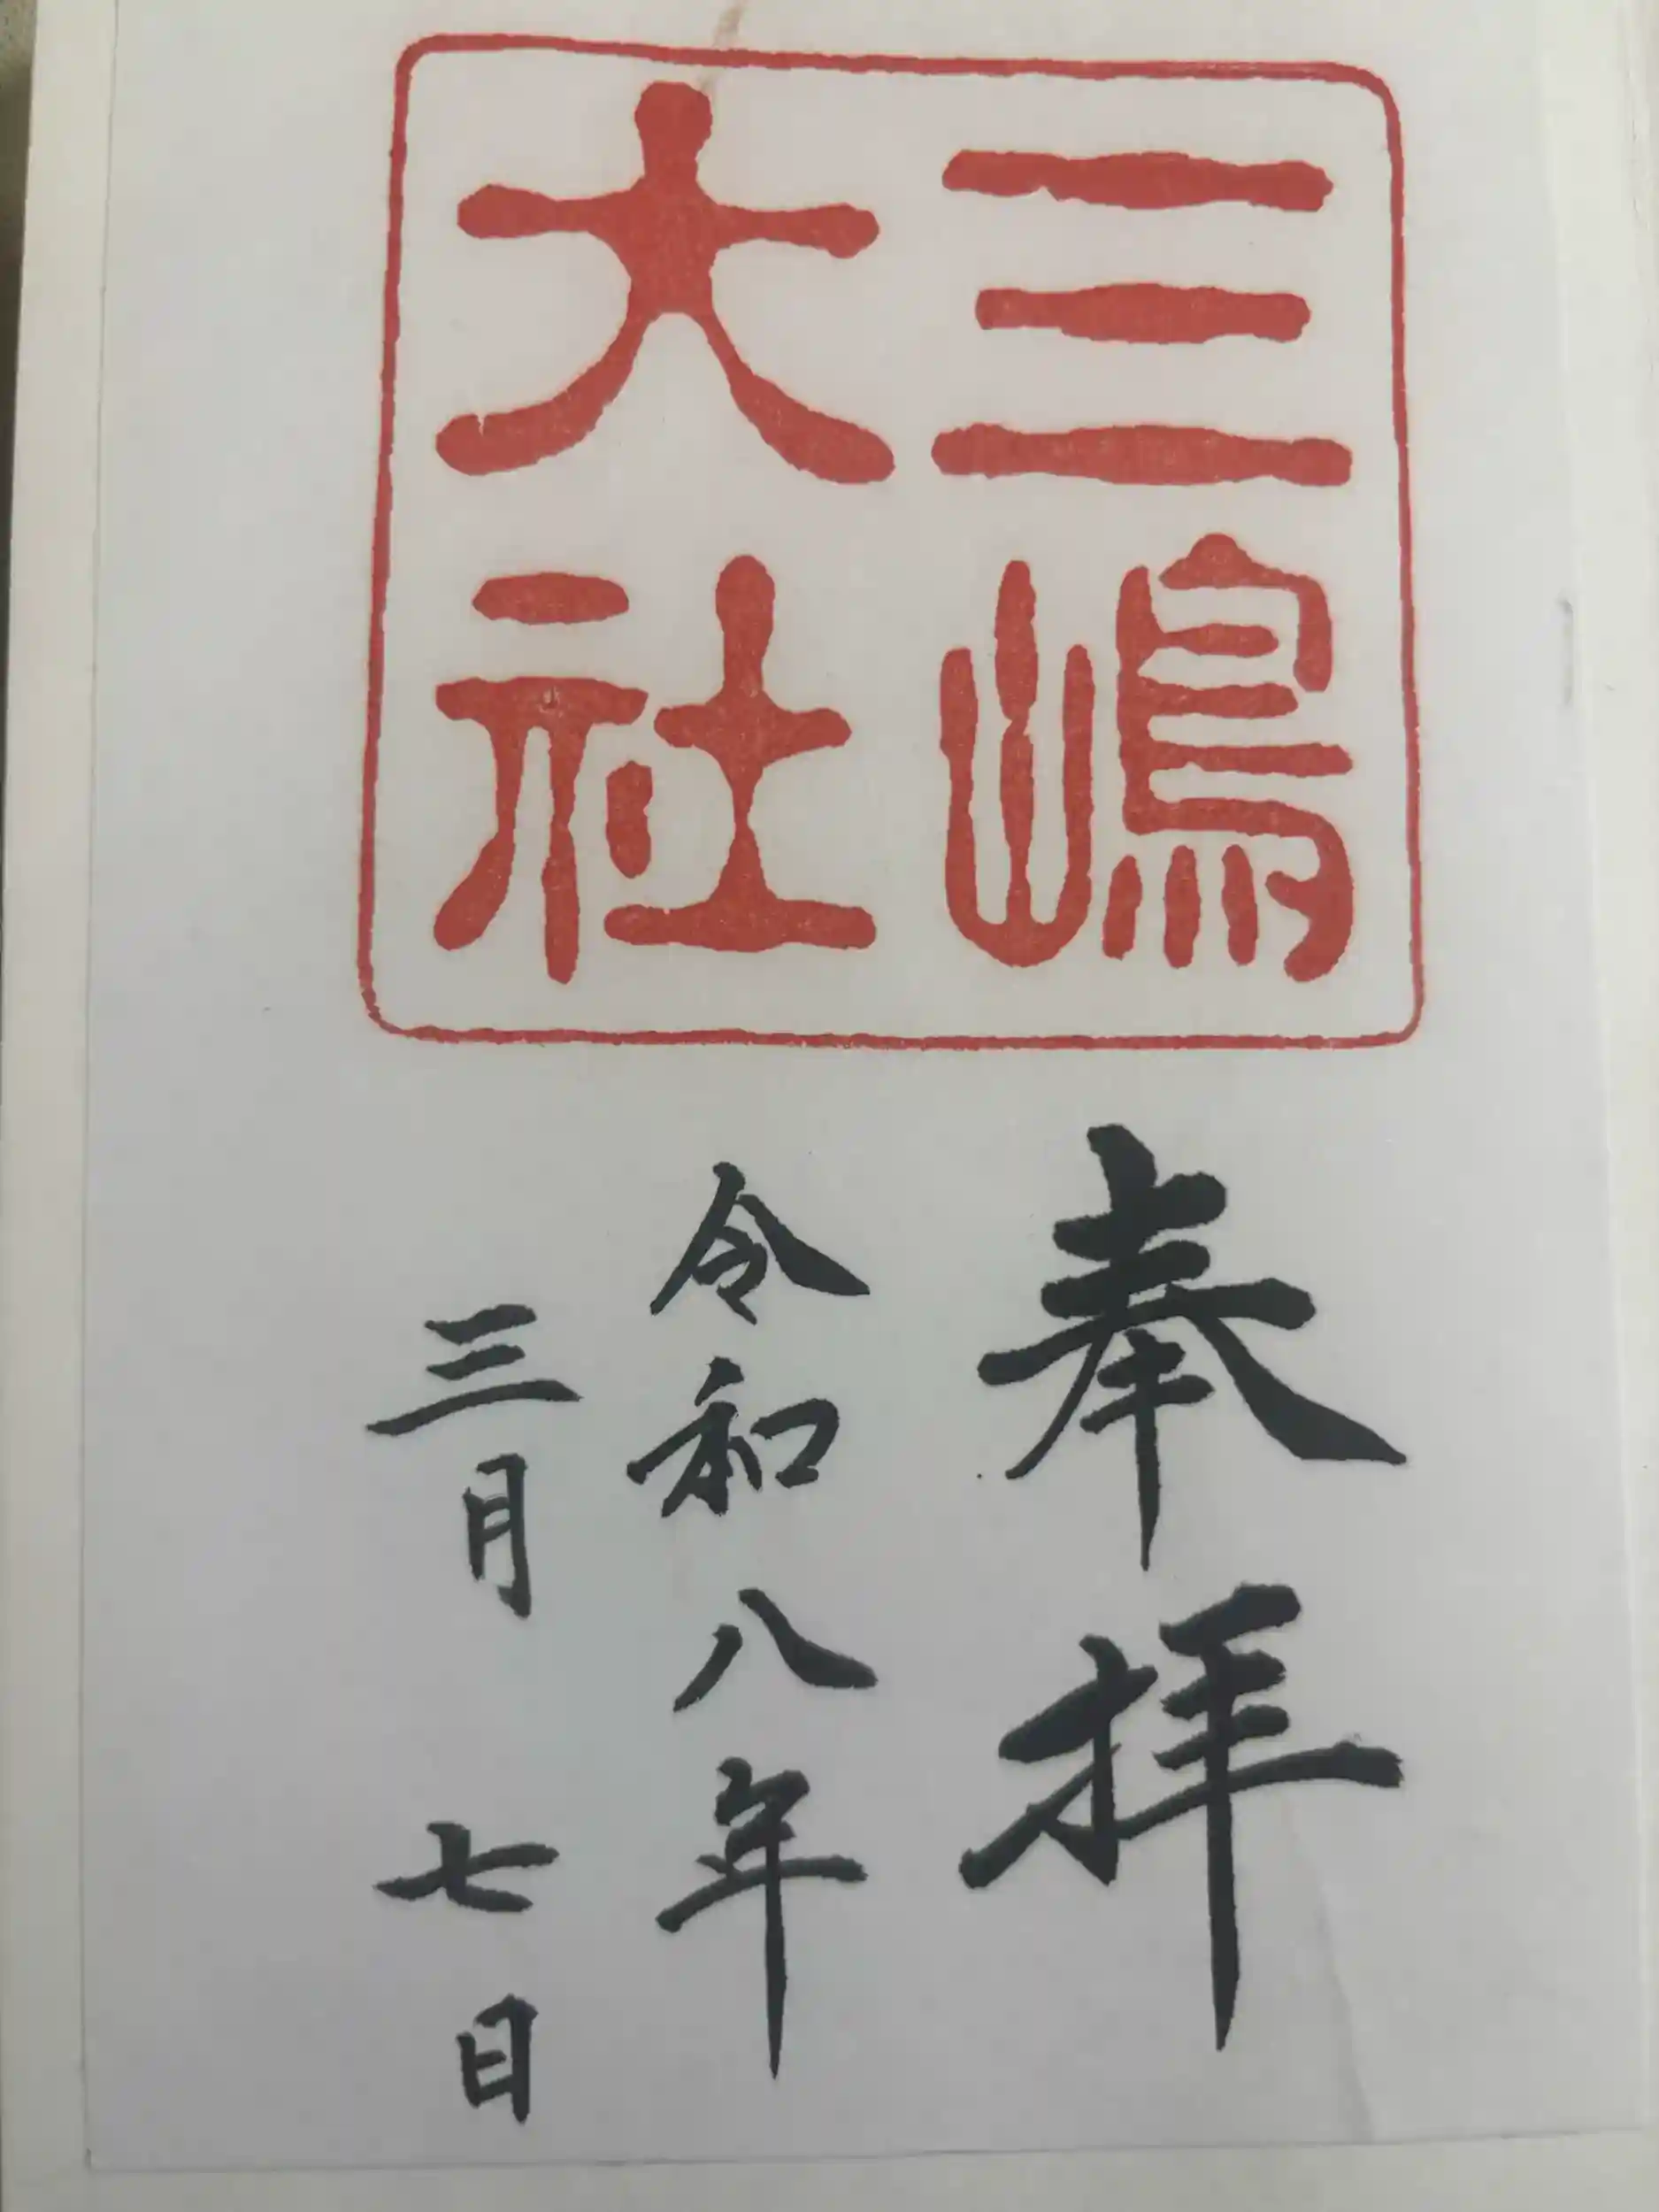 三嶋
大社
奉拝
令和八年
三月七日